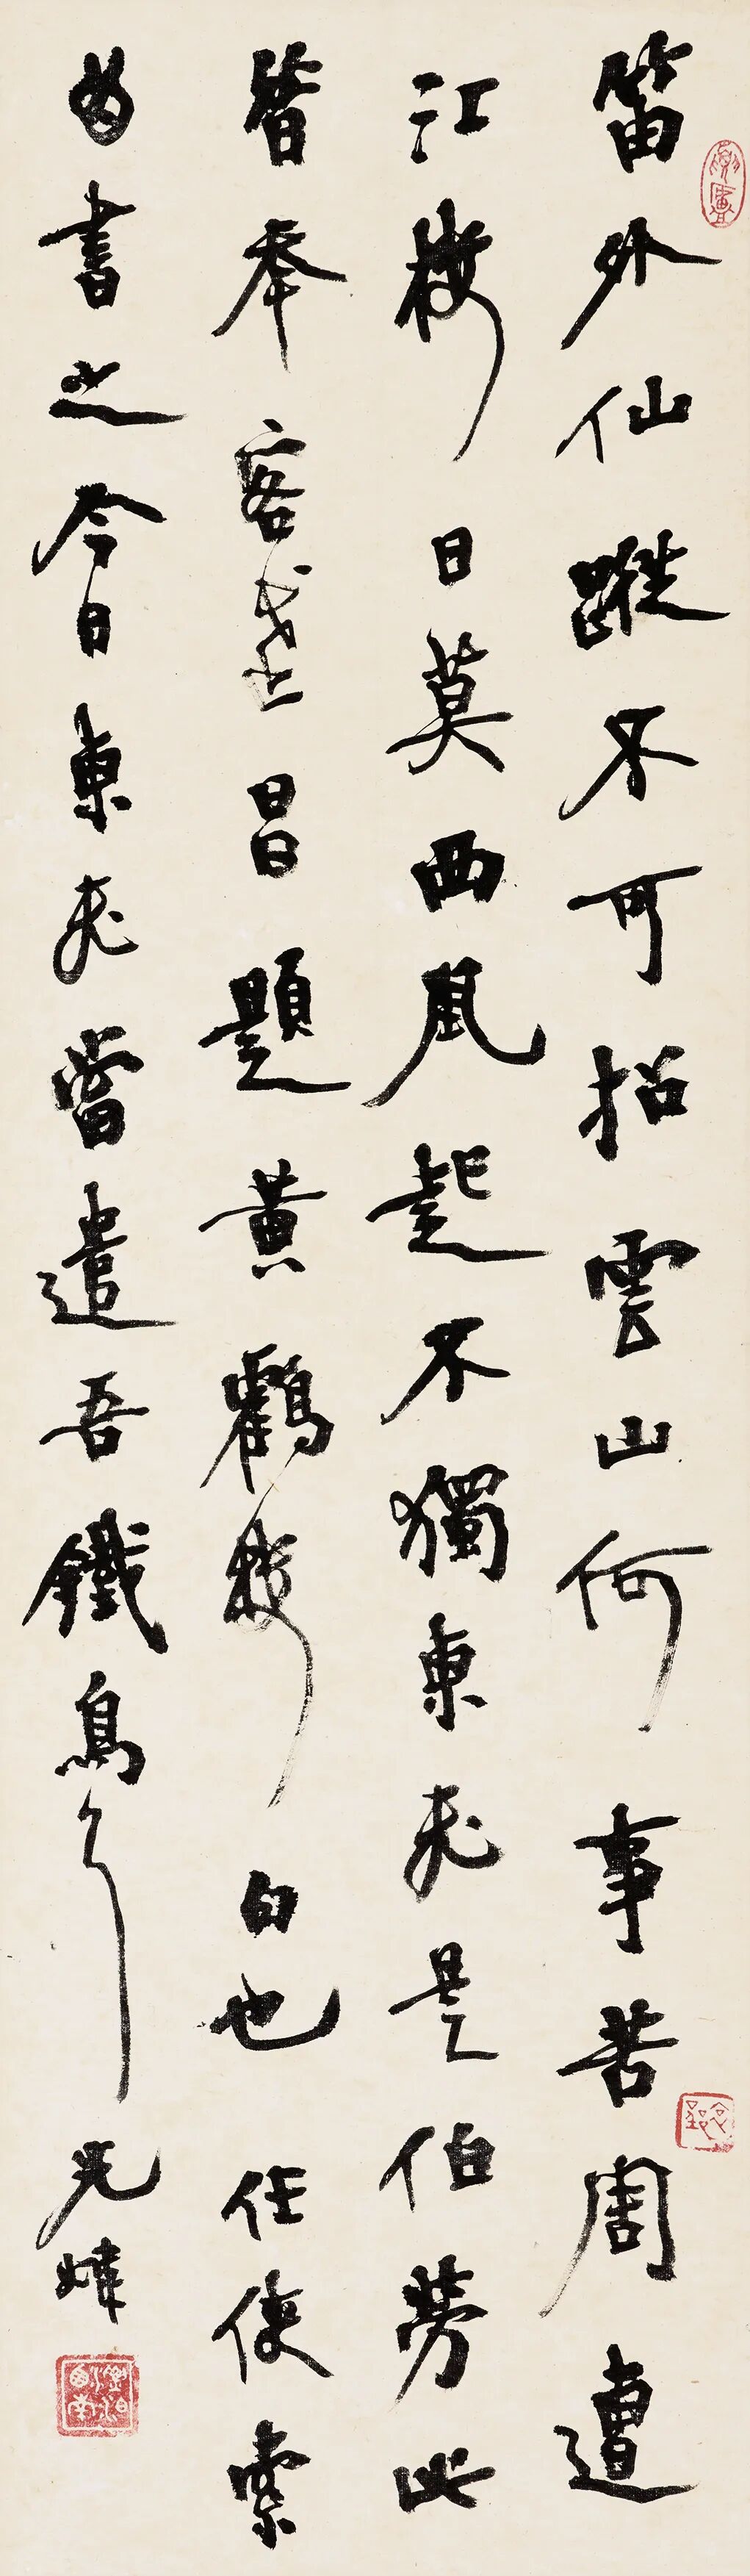 笛外仙蹤不可招雲山何事苦周遭
江樓日莫西風起不獨東飛是伯勞此
昔年客武昌題黃鶴樓句也任俠索
書之今日東飛當遣吾鐵鳥耳
光煒